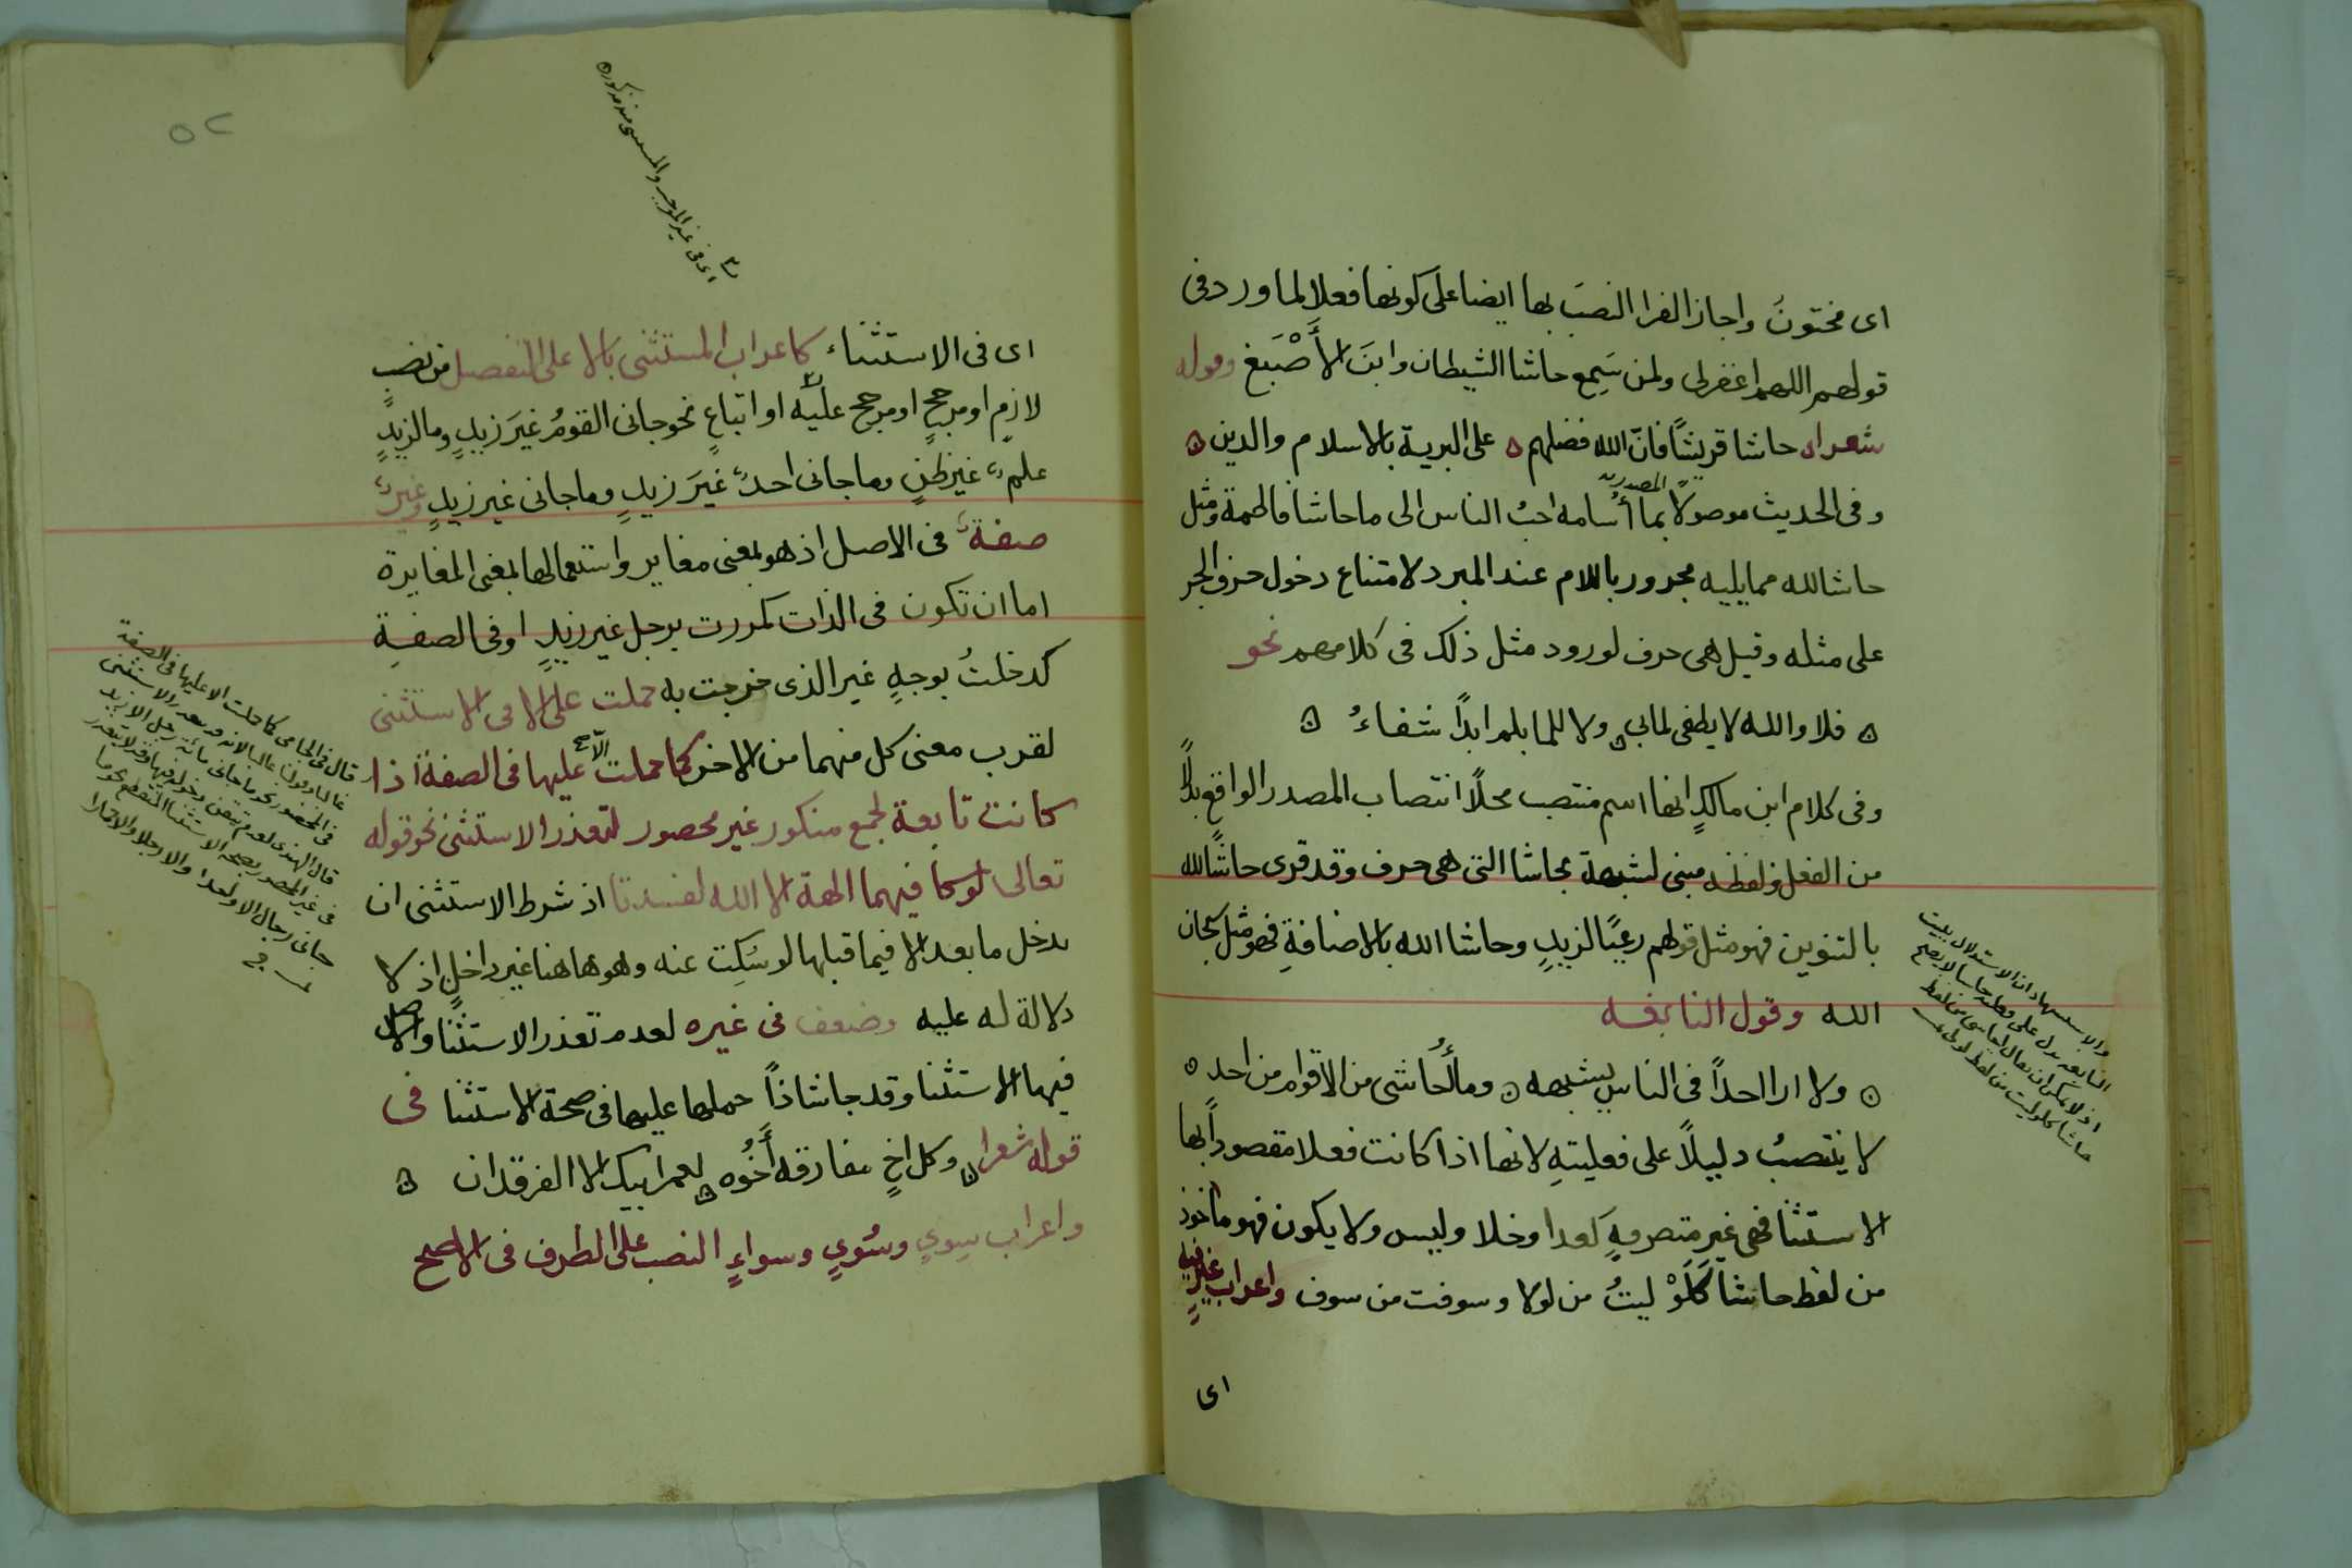 اى مختون واجاز الفرا النصبَ بها ايضا على كونها فعلا لما ورد فى
قولهم اللهم اغفرلى ولمن سَمِع حاشا الشيطان وابنَ الأَصْبَغ وقوله
شعرا حاشا قريشًا فانّ الله فضلهم على البرية بالاسلام والدين
المصدرية
وفى الحديث موصولًا بما أُسامه احبُ الناس الى ما حاشا فاطمة ومثل
حاشا لله مما يليه مجرور باللام عند المبرد لامتناع دخول حرف الجر
على مثله وقيل هى حرف لورود مثل ذلك فى كلامهم نحو
فلا والله لا يطفى لمابي ولا للما بلم ابدًا شفاءُ
وفى كلام ابن مالكٍ انها اسم منتصب محلًا انتصاب المصدر الواقع بدلًا
من الفعل ولفظه مبنى لشبهه بحاشا التى هى حرف وقد قرى حاشًا لله
بالتنوين فهو مثل قولهم رعيًا لزيدٍ وحاشا الله بالاضافةِ فهو مثل سبحان
الله وقول النابغه
ولا ارا احدًا فى الناس يشبهه وما أُحاشى من الاقوام من احد
لا ينتصبُ دليلًا على فعليتهِ لانها اذا كانت فعلا مقصودًا بها
الاستثنا فهى غير متصرفهٍ كعدا وخلا وليس ولا يكون فهو مأخوذ
من لفظ حاشا كَلَوْ ليتُ من لولا وسوفت من سوف واعراب غيرٍ فيه
اى
والاستشهاد ان الاستدلال ببيت
النابغه يدل على فعليه حاشا لا يصح
اذ لا يمكن ان يقال احاشى من لفظ
حاشا كلوليت من لفظ لولا
٥٢
اى فى غير الموجب والمستثنى منه مذكور
اى فى الاستثناء كاعراب المستثنى بالا على التفصيل من نصبٍ
لازمٍ او مرجحٍ او مرجح عليه او اتباعٍ نحو جانى القومُ غيرَ زيدٍ وما لزيدٍ
علمٌ غير ظنٍ وما جانى احدٌ غيرَ زيدٍ وما جانى غير زيدٍ وغيرٌ
صفةٌ فى الاصل اذ هو بمعنى مغاير واستعمالها بمعنى المغايرة
اما ان تكون فى الذات كمررت برجل غير زيدٍ او فى الصفةِ
كدخلتُ بوجهٍ غير الذى خرجت به حملت على الا فى الاستثنى
لقرب معنى كل منهما من الاخر كما حملت الّا عليها فى الصفة اذا
كانت تابعة لجمع منكور غير محصور لتعذر الاستثنى نحو قوله
تعالى لو كا فيهما الهة الا الله لفسدتا اذ شرط الاستثنى ان
يدخل ما بعد الا فيما قبلها لو سُكِت عنه وهو هاهنا غير داخلٍ اذ لا
دلالة له عليه وضعف فى غيره لعدم تعذر الاستثنا والاصل
فيها الاستثنا وقد جا شاذاً حملها عليها فى صحة الاستثنا فى
قوله شعرا وكل اخٍ مفارقه أَخُوه لعمر ابيك الا الفرقدان
واعراب سِوىٍ وسُوىٍ وسواءٍ النصب على الظرف فى الاصح
قال فى الجامى كما حملت الا عليها فى الصفة
غالبا وقولنا غالبا لانه قد يتعذر الاستثنى
فى المحصور نحو ما جانى مائة رجل الا زيد
قال الهندى لعدم تيقن دخوله فيها وقد لا يتعذر
فى غير المحصور بصحة الاستثنا المنقطع نحو ما
جانى رجال الا واحدا والا رجلا والا حمارا